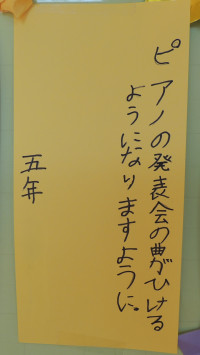 ピアノの発表会の曲がひける
ようになりますように。
五年